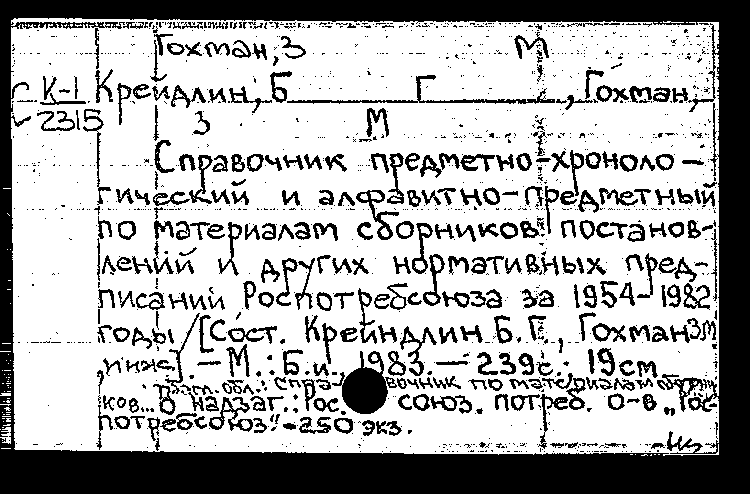 Гохман, З М
К-1 Крейдлин, Б Г , Гохман,
2315 З М
Справочник предметно-хроноло-
гический и алфавитно-предметный
по материалам сборников постанов-
лений и других нормативных пред-
писаний Роспотребсоюза за 1954-1982
годы / [Сост. Крейндлин Б.Г., Гохман З.М.
, ниже]. — М.: Б.и., 1983. — 239 с.; 19 см
Загл. обл.: Спра-вочник по материалам сборни
ков... О надзаг.: Рос. союз. потреб. о-в „Рос-
потребсоюз". - 250 экз.